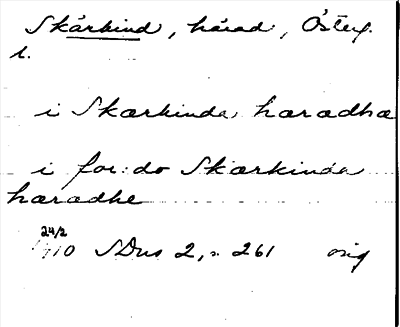 Skärkind, härad, Österg.
i Skærkinda hæradhæ
i for:do Skærkinda
hæradhe
24/2
1410 SDns 2, s. 261 orig